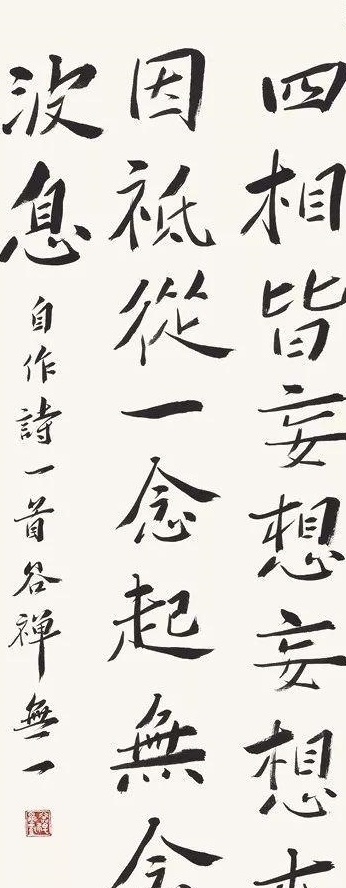 四相皆妄想妄想
因祗從一念起無念
波息
自作詩一首谷禪無一